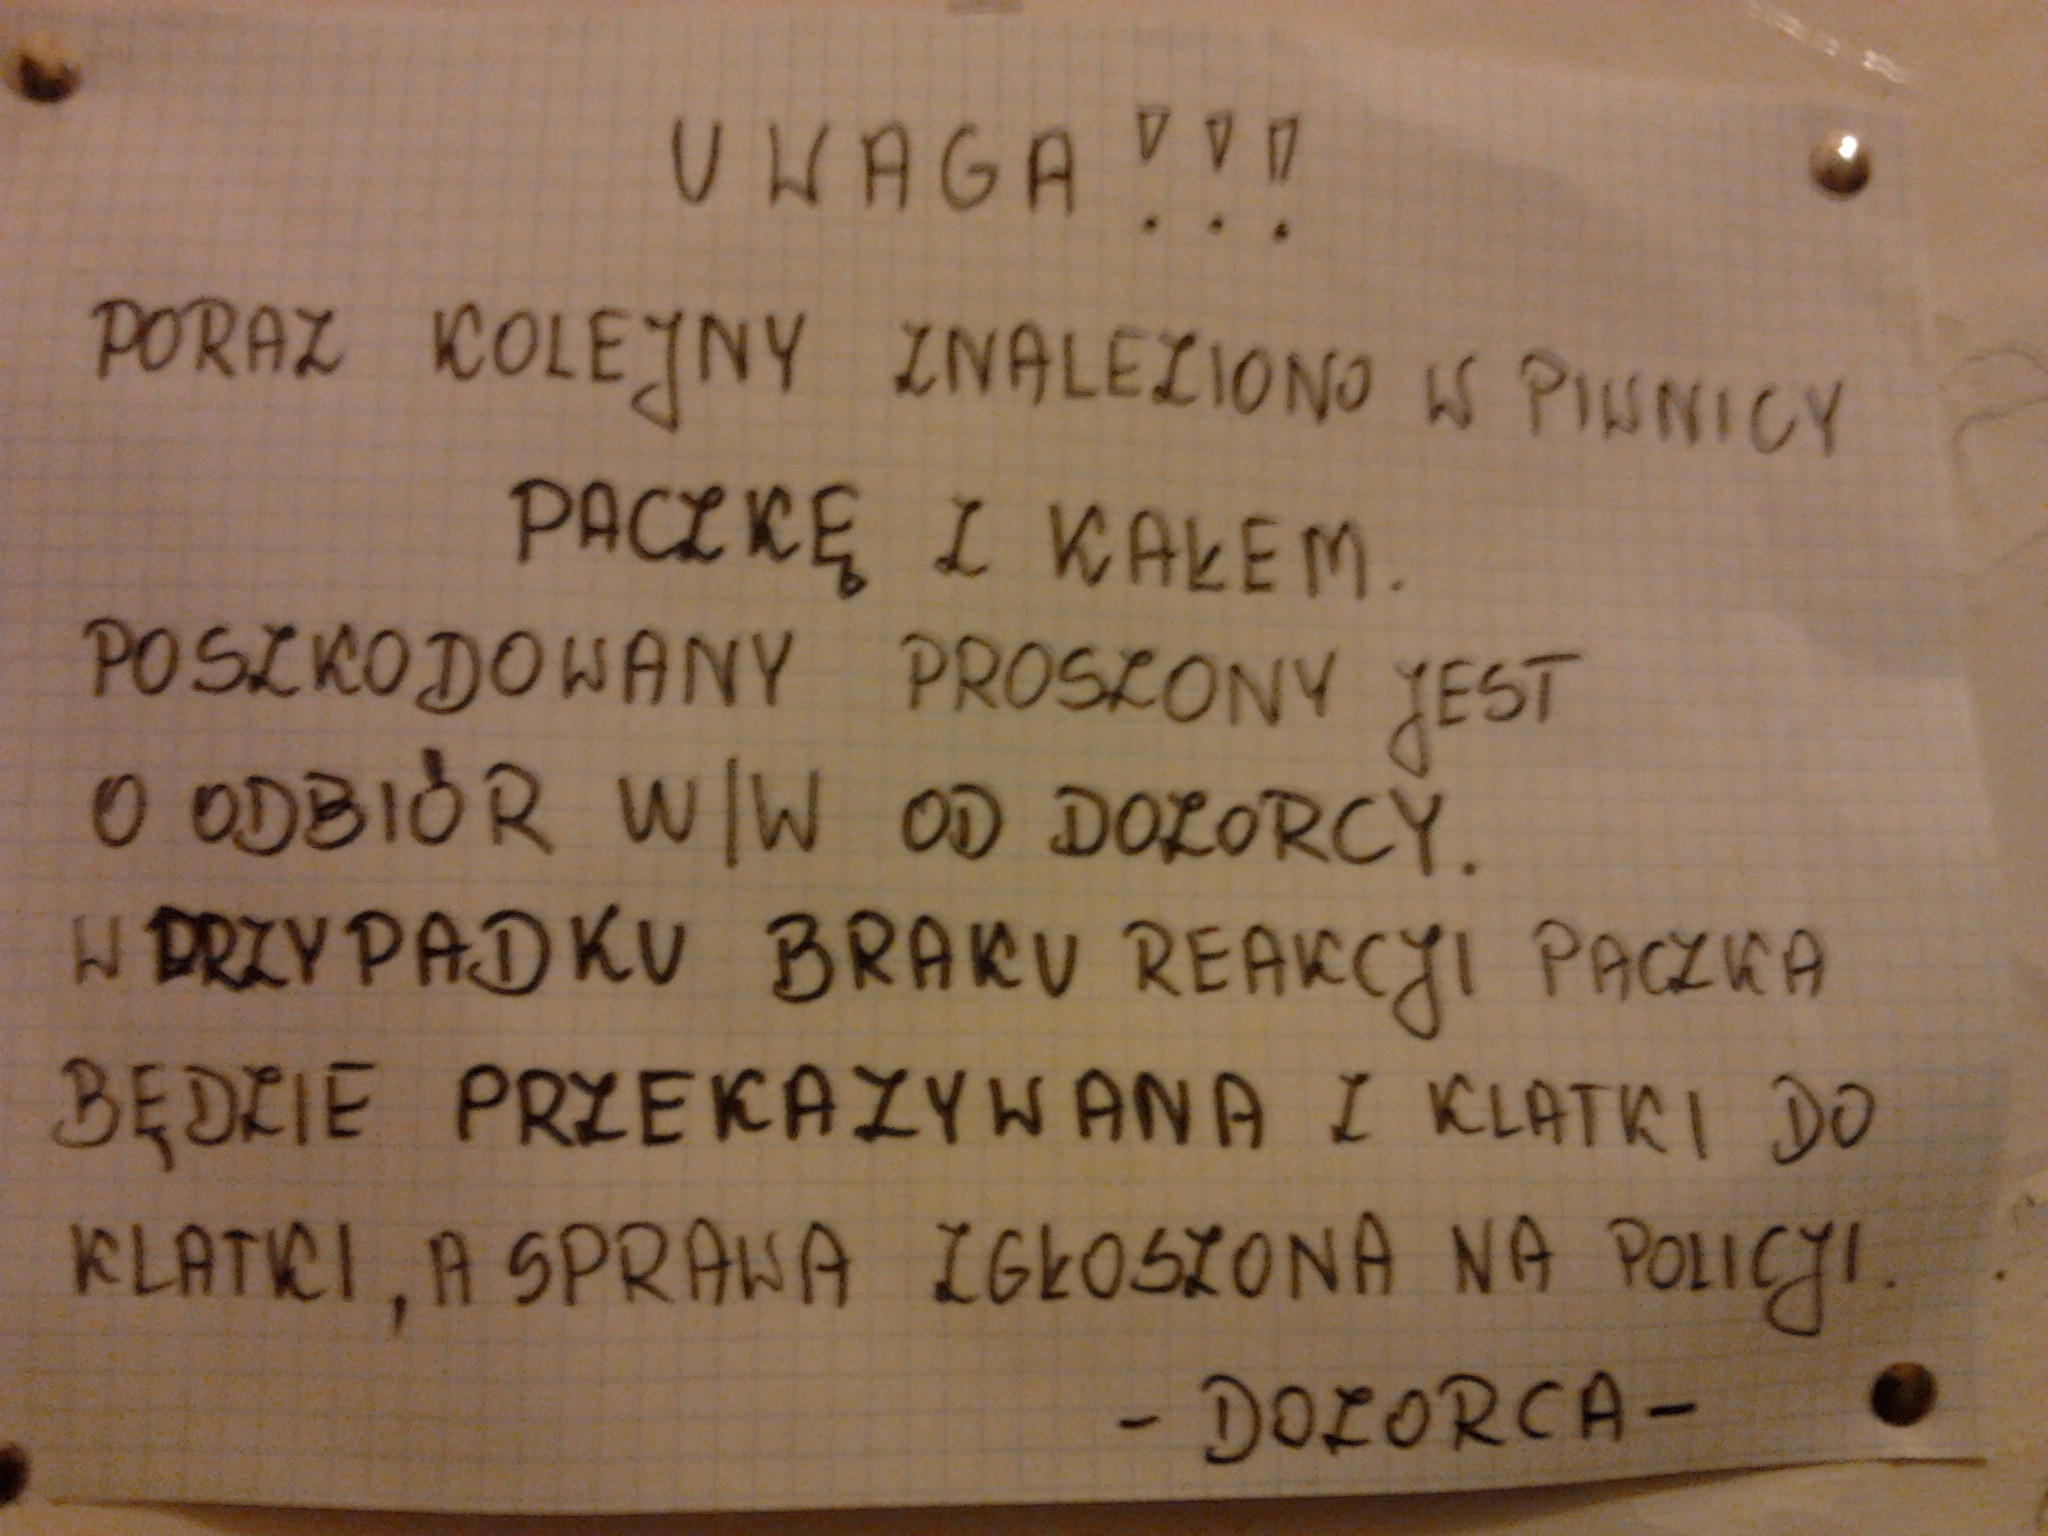 UWAGA!!!
PORAZ KOLEJNY ZNALEZIONO W PIWNICY
PACZKĘ Z KAŁEM.
POSZKODOWANY PROSZONY JEST
O ODBIÓR W/W OD DOZORCY.
W PRZYPADKU BRAKU REAKCJI PACZKA
BĘDZIE PRZEKAZYWANA Z KLATKI DO
KLATKI, A SPRAWA ZGŁOSZONA NA POLICJI.
- DOZORCA -